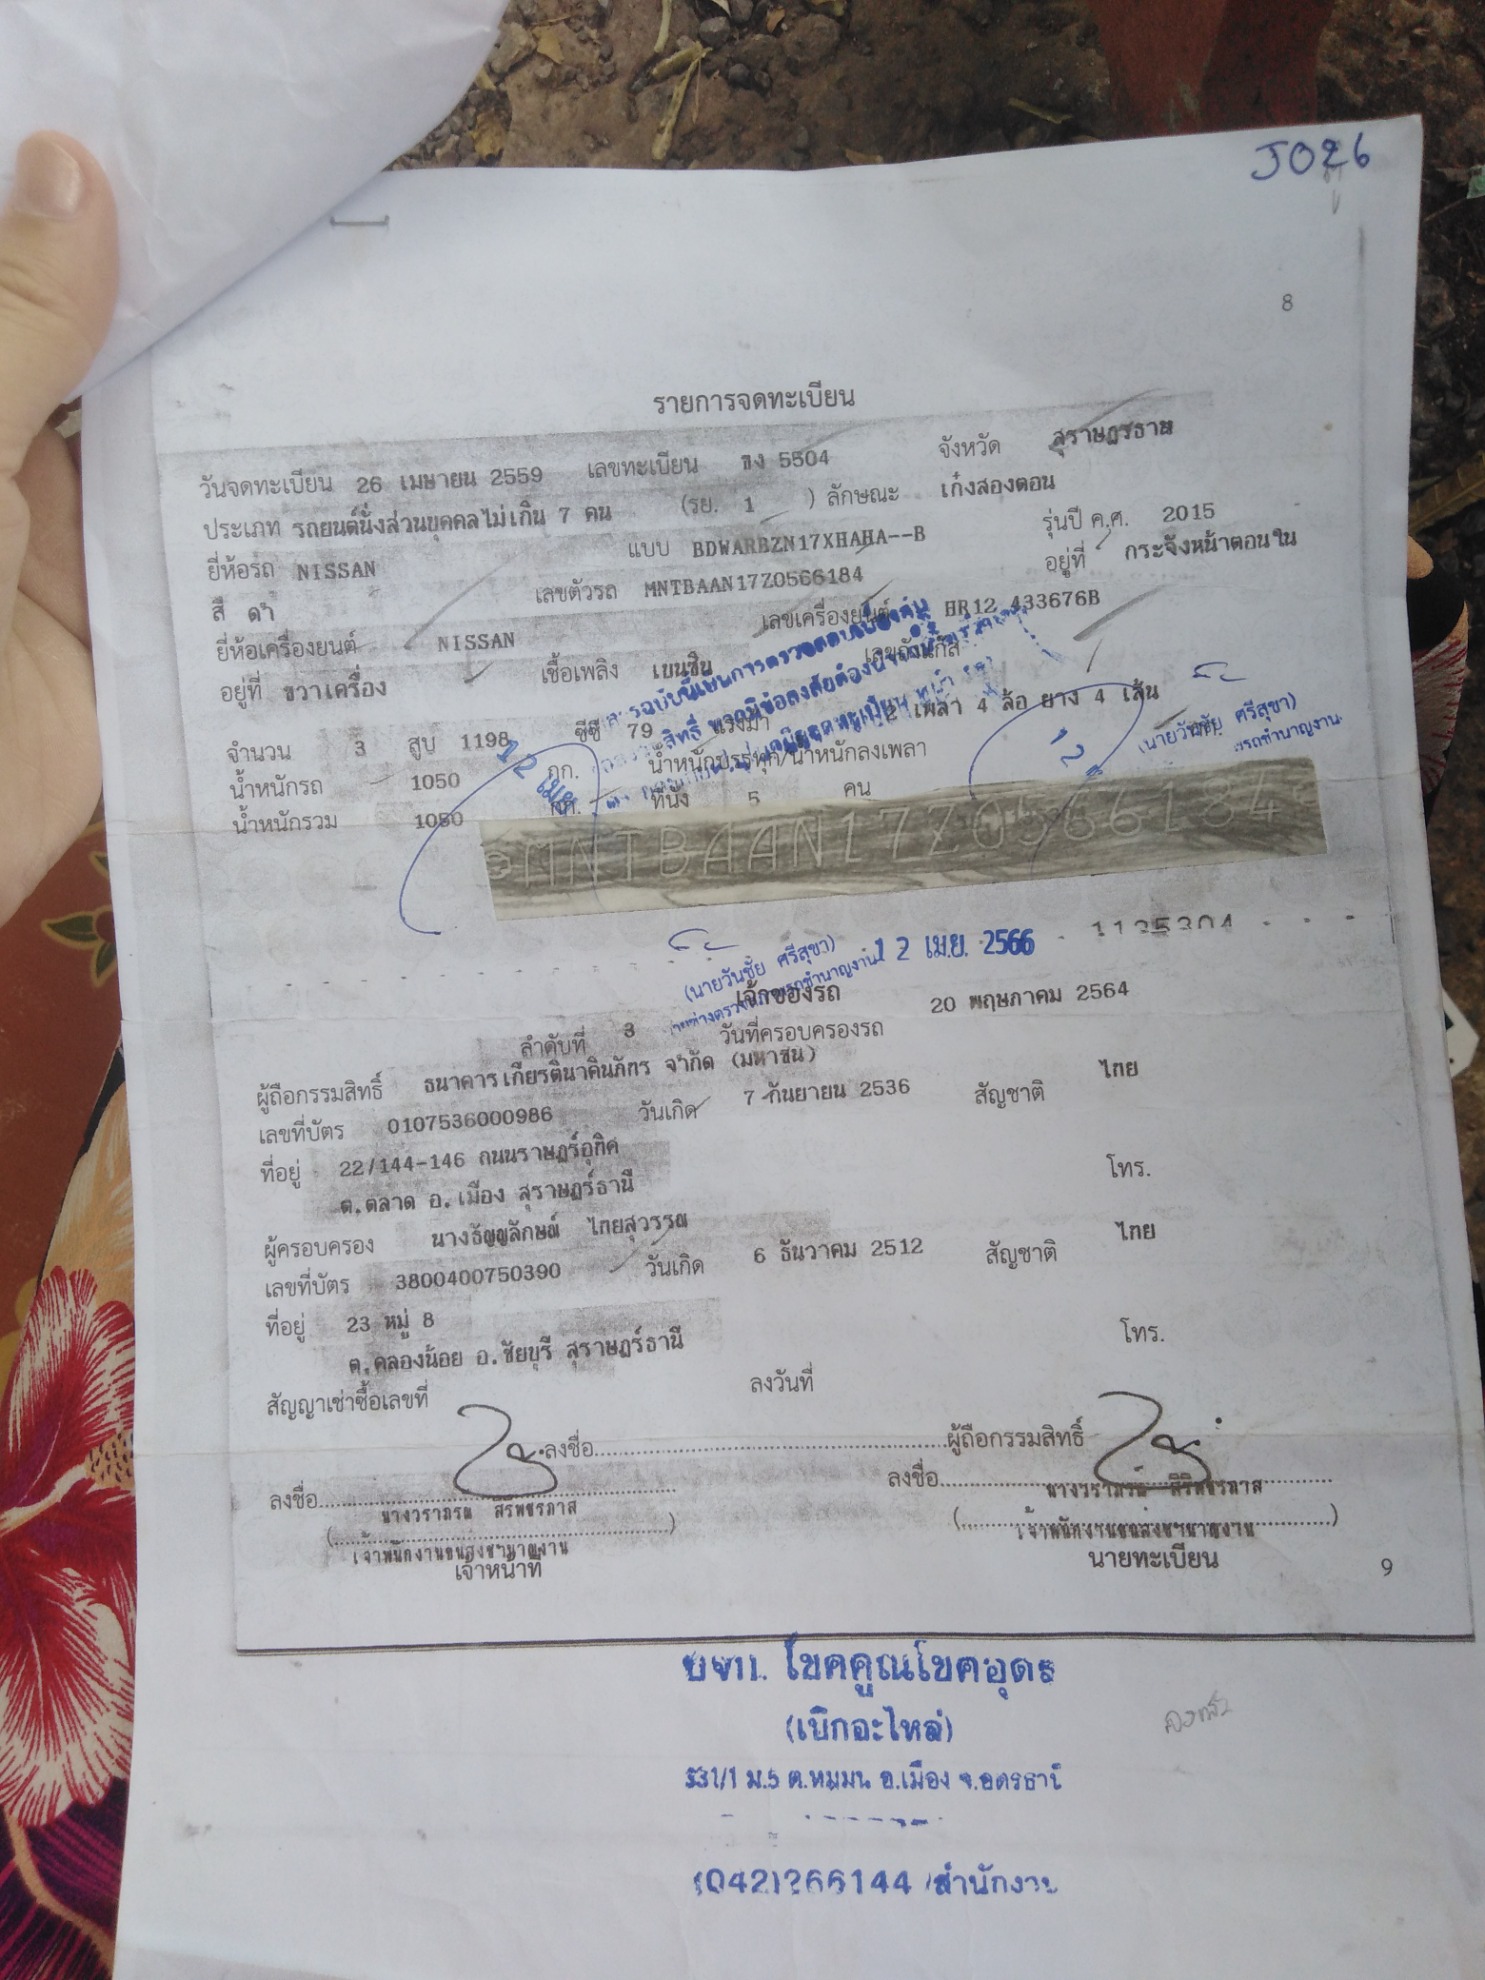 J026
8
รายการจดทะเบียน
วันจดทะเบียน 26 เมษายน 2559 เลขทะเบียน ขง 5504 จังหวัด สุราษฎร์ธานี
ประเภท รถยนต์นั่งส่วนบุคคลไม่เกิน 7 คน (รย. 1 ) ลักษณะ เก๋งสองตอน
ยี่ห้อรถ NISSAN แบบ BDWARBZN17XHAHA--B รุ่นปี ค.ศ. 2015
สี ดำ เลขตัวรถ MNTBAAN17Z0566184 อยู่ที่ กระจังหน้าตอนใน
ยี่ห้อเครื่องยนต์ NISSAN เลขเครื่องยนต์ HR12 433676B
อยู่ที่ ขวาเครื่อง เชื้อเพลิง เบนซิน เลขถังแก๊ส
จำนวน 3 สูบ 1198 ซีซี 79 แรงม้า 2 เพลา 4 ล้อ ยาง 4 เส้น
น้ำหนักรถ 1050 กก. น้ำหนักบรรทุก/น้ำหนักลงเพลา
น้ำหนักรวม 1050 กก. ที่นั่ง 5 คน
(นายวันชัย ศรีสุขา)
12 เม.ย.
MNTBAAN17Z0566184
12 เม.ย. 2566
1125304
(นายวันชัย ศรีสุขา)
นายช่างตรวจสภาพรถชำนาญงาน
เจ้าของรถ
ลำดับที่ 3 วันที่ครอบครองรถ 20 พฤษภาคม 2564
ผู้ถือกรรมสิทธิ์ ธนาคารเกียรตินาคินภัทร จำกัด (มหาชน)
เลขที่บัตร 0107536000986 วันเกิด 7 กันยายน 2536 สัญชาติ ไทย
ที่อยู่ 22/144-146 ถนนราษฎร์อุทิศ
ต.ตลาด อ.เมือง สุราษฎร์ธานี โทร.
ผู้ครอบครอง นางธัญญลักษณ์ ไทยสุวรรณ
เลขที่บัตร 3800400750390 วันเกิด 6 ธันวาคม 2512 สัญชาติ ไทย
ที่อยู่ 23 หมู่ 8
ต.คลองน้อย อ.ชัยบุรี สุราษฎร์ธานี โทร.
สัญญาเช่าซื้อเลขที่ ลงวันที่
ลงชื่อ ผู้ถือกรรมสิทธิ์
ลงชื่อ ลงชื่อ
นางวราภรณ์ สิริพชรภาส นางวราภรณ์ สิริพชรภาส
( ) ( )
เจ้าพนักงานขนส่งชำนาญงาน เจ้าพนักงานขนส่งชำนาญงาน
เจ้าหน้าที่ นายทะเบียน
9
บจก. โชคคูณโชคอุดร
(เบิกอะไหล่)
531/1 ม.5 ต.หมูม่น อ.เมือง จ.อุดรธานี
(042)266144 สำนักงาน